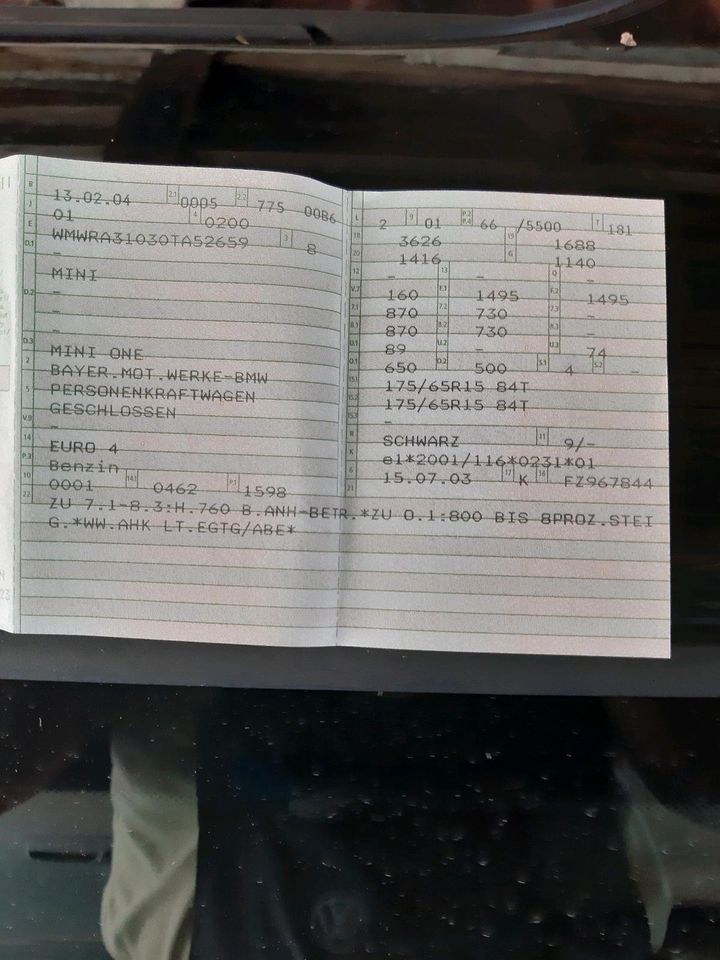 B 13.02.04 2.1 0005 2.2 775 0086
J 01 4 0200
E WMWRA31030TA52659 3 8
D.1 –
MINI
D.2 –
–
–
D.3 MINI ONE
2 BAYER.MOT.WERKE-BMW
5 PERSONENKRAFTWAGEN
GESCHLOSSEN
V.9 –
14 EURO 4
P.3 Benzin
10 0001 14.1 0462 P.1 1598
L 2 9 01 P.2 P.4 66 /5500 T 181
18 3626 19 1688
20 1416 G 1140
12 – 13 – Q –
V.7 160 F.1 1495 F.2 1495
7.1 870 7.2 730 7.3 –
8.1 870 8.2 730 8.3 –
U.1 89 U.2 – U.3 74
O.1 650 O.2 500 S.1 4 S.2 –
15.1 175/65R15 84T
15.2 175/65R15 84T
15.3 –
R SCHWARZ 11 9/–
K e1*2001/116*0231*01
6 15.07.03 17 K 16 FZ967844
21
22 ZU 7.1-8.3:H.760 B.ANH-BETR.*ZU O.1:800 BIS 8PROZ.STEI
G.*WW.AHK LT.EGTG/ABE*